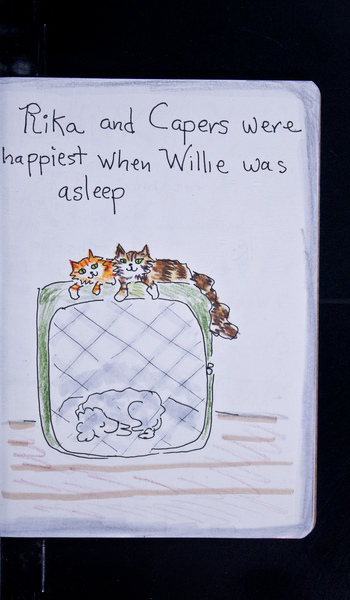 Rika and Capers were
happiest when Willie was
asleep